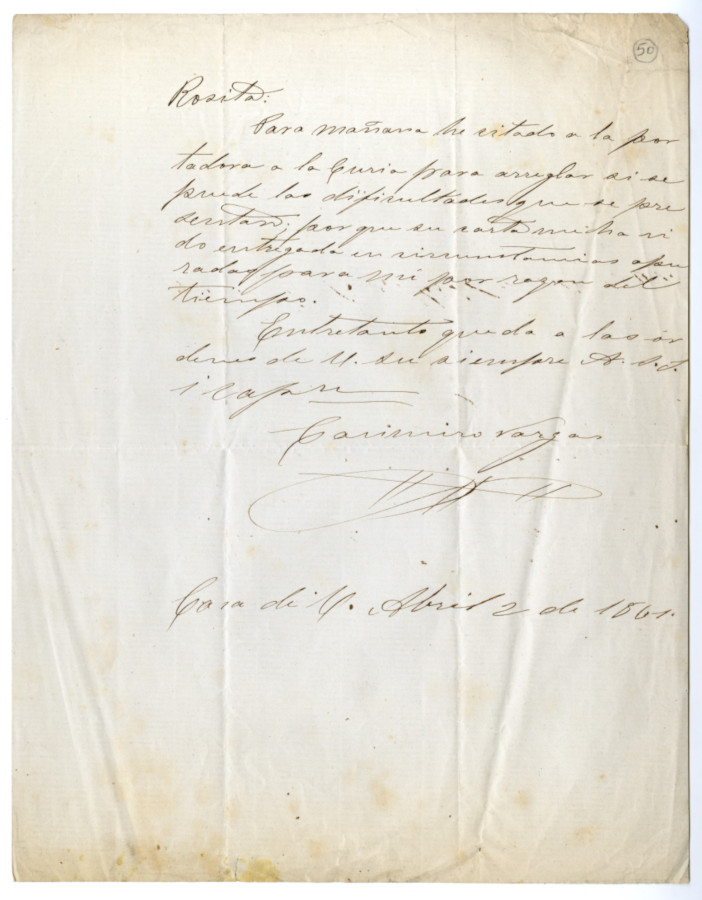 50
Rosita:
Para mañana he citado a la por
tadora a la Curia para arreglar si se
puede las dificultades que se pre
sentan; porque su carta me ha si
do entregada en circunstancias apu
radas para mi por razon del
tiempo.
Entretanto queda a las or
denes de U. su siempre A. S. S.
i capn
Casimiro Vargas
Casa de U. Abril 2 de 1861.